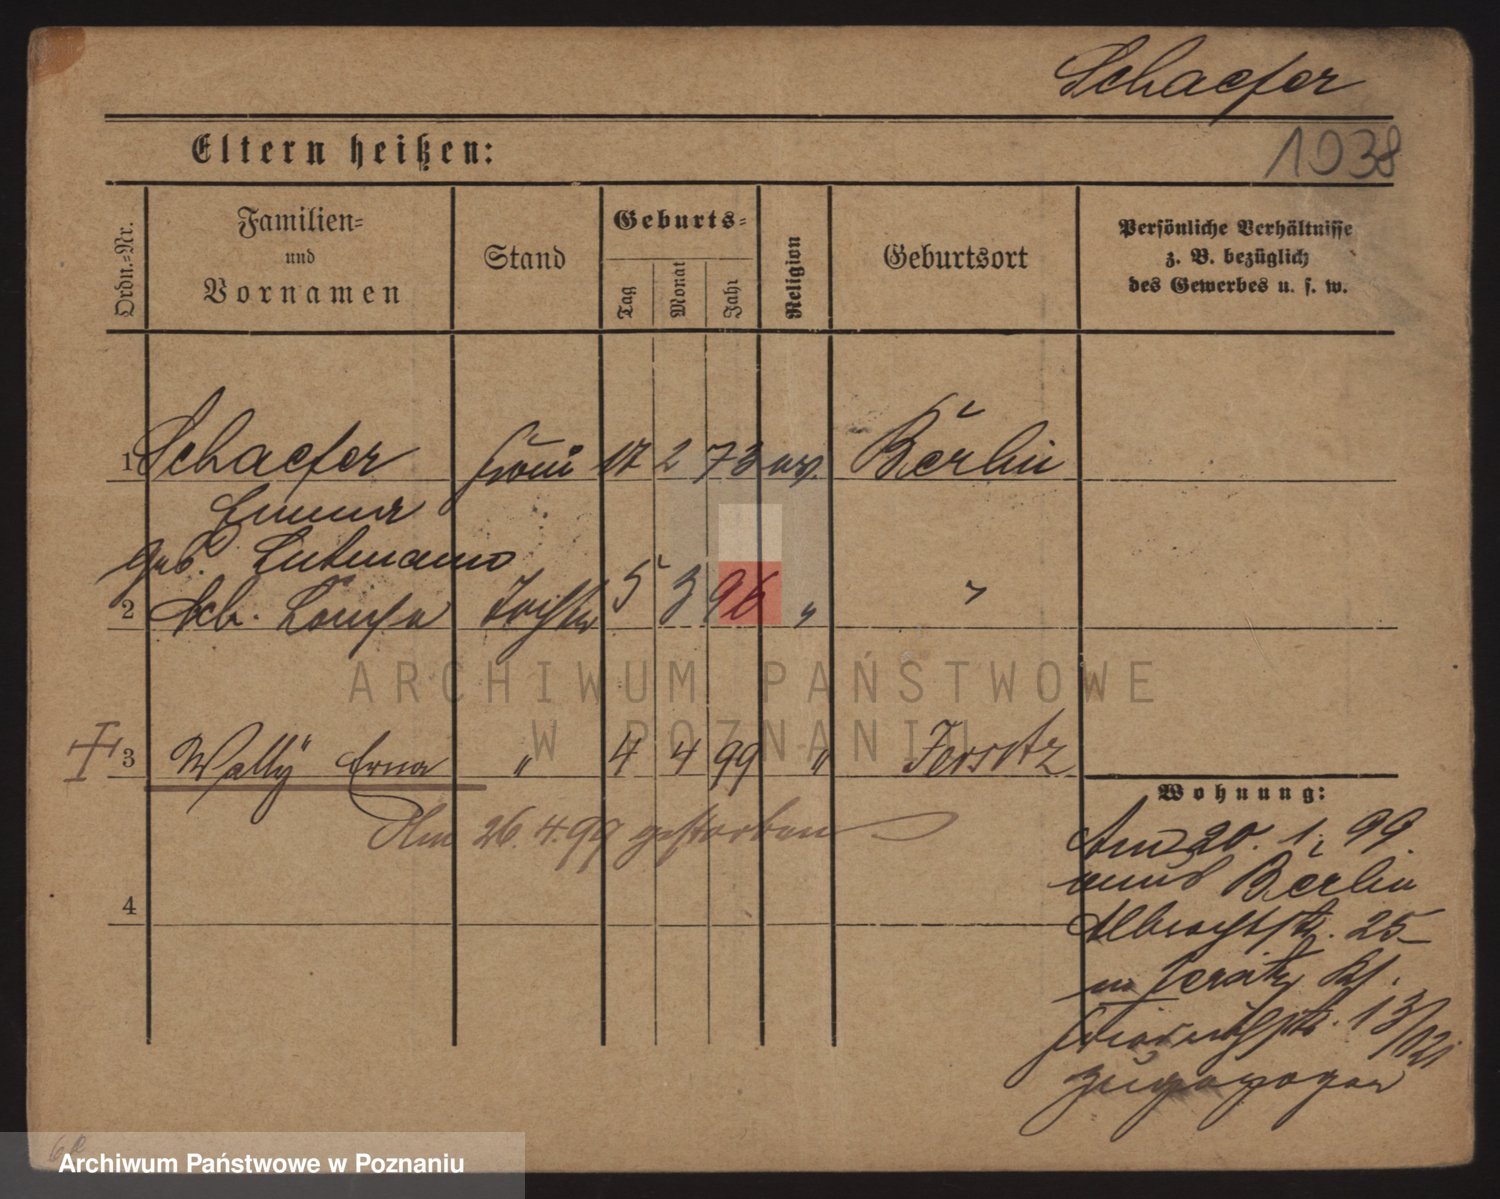 Schaefer
1038
Eltern heißen:
Ordn.-Nr.
Familien-
und
Vornamen
Stand
Geburts-
Tag
Monat
Jahr
Religion
Geburtsort
Persönliche Verhältnisse
z. B. bezüglich
des Gewerbes u. s. w.
1 Schaefer Frau 17 2 73 ev. Berlin
Emma
geb.
2 Tochter 5 3 96 "
3 Wally Erna " 4 4 99 " Jersitz
Am 26.4.99 gestorben
4
Wohnung:
Am 20. 1. 99
aus Berlin
Albrechtstr. 25
in Jersitz
13/
zugezogen
ARCHIWUM PAŃSTWOWE
W POZNANIU
Archiwum Państwowe w Poznaniu